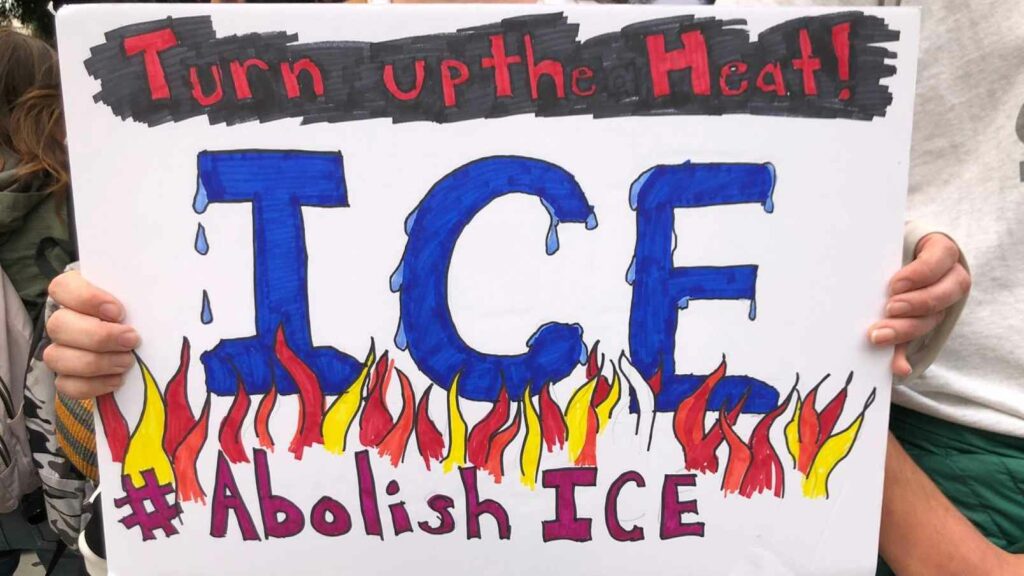 Turn up the Heat!
ICE
#Abolish ICE